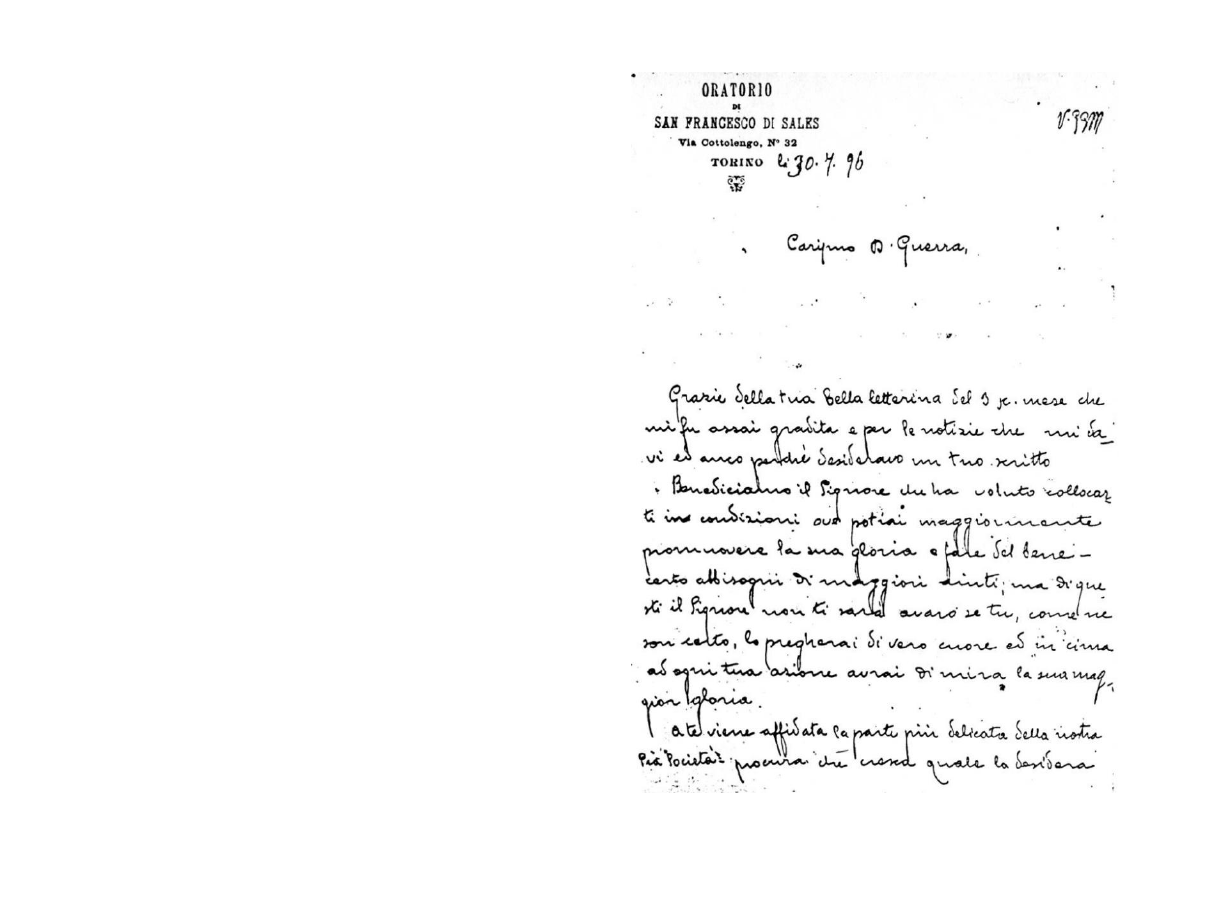 ORATORIO
DI
SAN FRANCESCO DI SALES
Via Cottolengo, N° 32
TORINO li 30. 7. 96
V. GGM
Carimo D. Guerra,
Grazie della tua bella letterina del 3 p. mese che
mi fu assai gradita e per le notizie che mi da_
vi ed anco perchè desideravo un tuo scritto
Benediciamo il Signore che ha voluto collocar
ti in condizioni ove potrai maggiormente
promuovere la sua gloria e fare del bene –
certo abbisogni di maggiori aiuti; ma di que
sti il Signore non ti sarà avaro se tu, come ne
son certo, lo pregherai di vero cuore ed in cima
ad ogni tua azione avrai di mira la sua mag_
gior gloria.
A te viene affidata la parte più delicata della nostra
Pia Società: procura che cresca quale la desidera